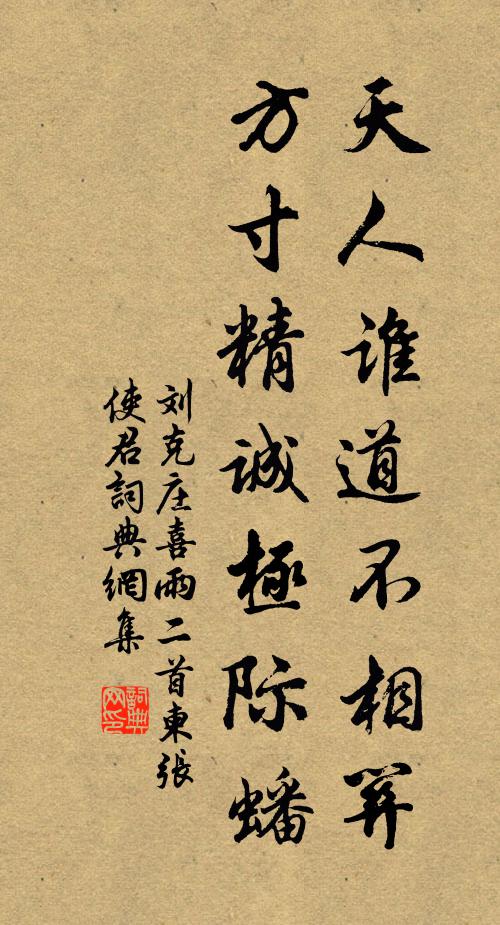 天人谁道不相關
方寸精诚極际蟠
刘克庄喜雨二首東張
使君詞典網集
詞典网印